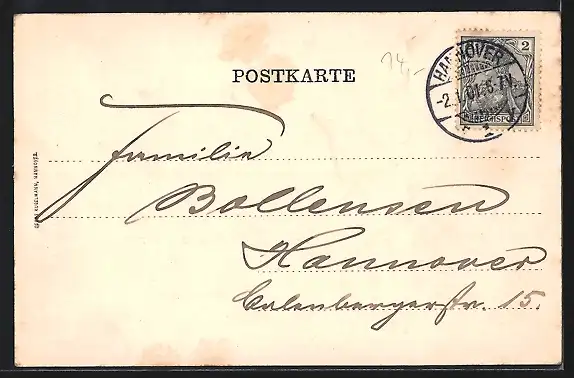 14,-
HANNOVER
2
-2.1.01.6-7V.
REICHSPOST
POSTKARTE
Familie
Bollensen
Hannover
Calenbergerstr. 15.
HANNOVER.